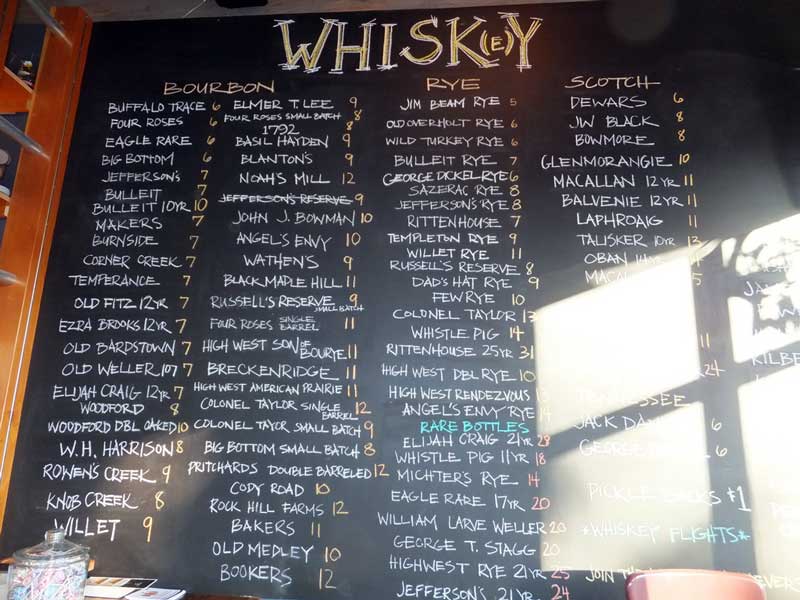 WHISK(E)Y
BOURBON
BUFFALO TRACE 6
FOUR ROSES 6
EAGLE RARE 6
BIG BOTTOM 6
JEFFERSON'S 7
BULLEIT 7
BULLEIT 10YR 10
MAKERS 7
BURNSIDE 7
CORNER CREEK 7
TEMPERANCE 7
OLD FITZ 12YR 7
EZRA BROOKS 12YR 7
OLD BARDSTOWN 7
OLD WELLER 107 7
ELIJAH CRAIG 12YR 7
WOODFORD 8
WOODFORD DBL OAKED 10
W.H. HARRISON 8
ROWEN'S CREEK 9
KNOB CREEK 8
WILLET 9
ELMER T. LEE 9
FOUR ROSES SMALL BATCH 8
1792 8
BASIL HAYDEN 9
BLANTON'S 9
NOAH'S MILL 12
JEFFERSON'S RESERVE 9
JOHN J. BOWMAN 10
ANGEL'S ENVY 10
WATHEN'S 9
BLACK MAPLE HILL 11
RUSSELL'S RESERVE SMALL BATCH 9
FOUR ROSES SINGLE BARREL 11
HIGH WEST SON OF BOURYE 11
BRECKENRIDGE 11
HIGH WEST AMERICAN PRAIRIE 11
COLONEL TAYLOR SINGLE BARREL 12
COLONEL TAYOR SMALL BATCH 9
BIG BOTTOM SMALL BATCH 8
PRITCHARDS DOUBLE BARRELED 12
CODY ROAD 10
ROCK HILL FARMS 12
BAKERS 11
OLD MEDLEY 10
BOOKERS 12
RYE
JIM BEAM RYE 5
OLD OVERHOLT RYE 6
WILD TURKEY RYE 6
BULLEIT RYE 7
GEORGE DICKEL RYE 6
SAZERAC RYE 8
JEFFERSON'S RYE 8
RITTENHOUSE 7
TEMPLETON RYE 9
WILLET RYE 11
RUSSELL'S RESERVE 8
DAD'S HAT RYE 9
FEW RYE 10
COLONEL TAYLOR 13
WHISTLE PIG 14
RITTENHOUSE 25YR 31
HIGH WEST DBL RYE 10
HIGH WEST RENDEZVOUS 13
ANGEL'S ENVY RYE 14
RARE BOTTLES
ELIJAH CRAIG 21YR 28
WHISTLE PIG 11YR 18
MICHTER'S RYE 14
EAGLE RARE 17YR 20
WILLIAM LARVE WELLER 20
GEORGE T. STAGG 20
HIGHWEST RYE 21YR 25
JEFFERSON'S 21YR 24
SCOTCH
DEWARS 6
JW BLACK 8
BOWMORE 8
GLENMORANGIE 10
MACALLAN 12YR 11
BALVENIE 12YR 11
LAPHROAIG 11
TALISKER 10YR 13
OBAN 14YR
11
24
TENNESSEE
JACK 6
GEORGE 6
PICKLE BACKS $1
*WHISKEY FLIGHTS*
JOIN THE